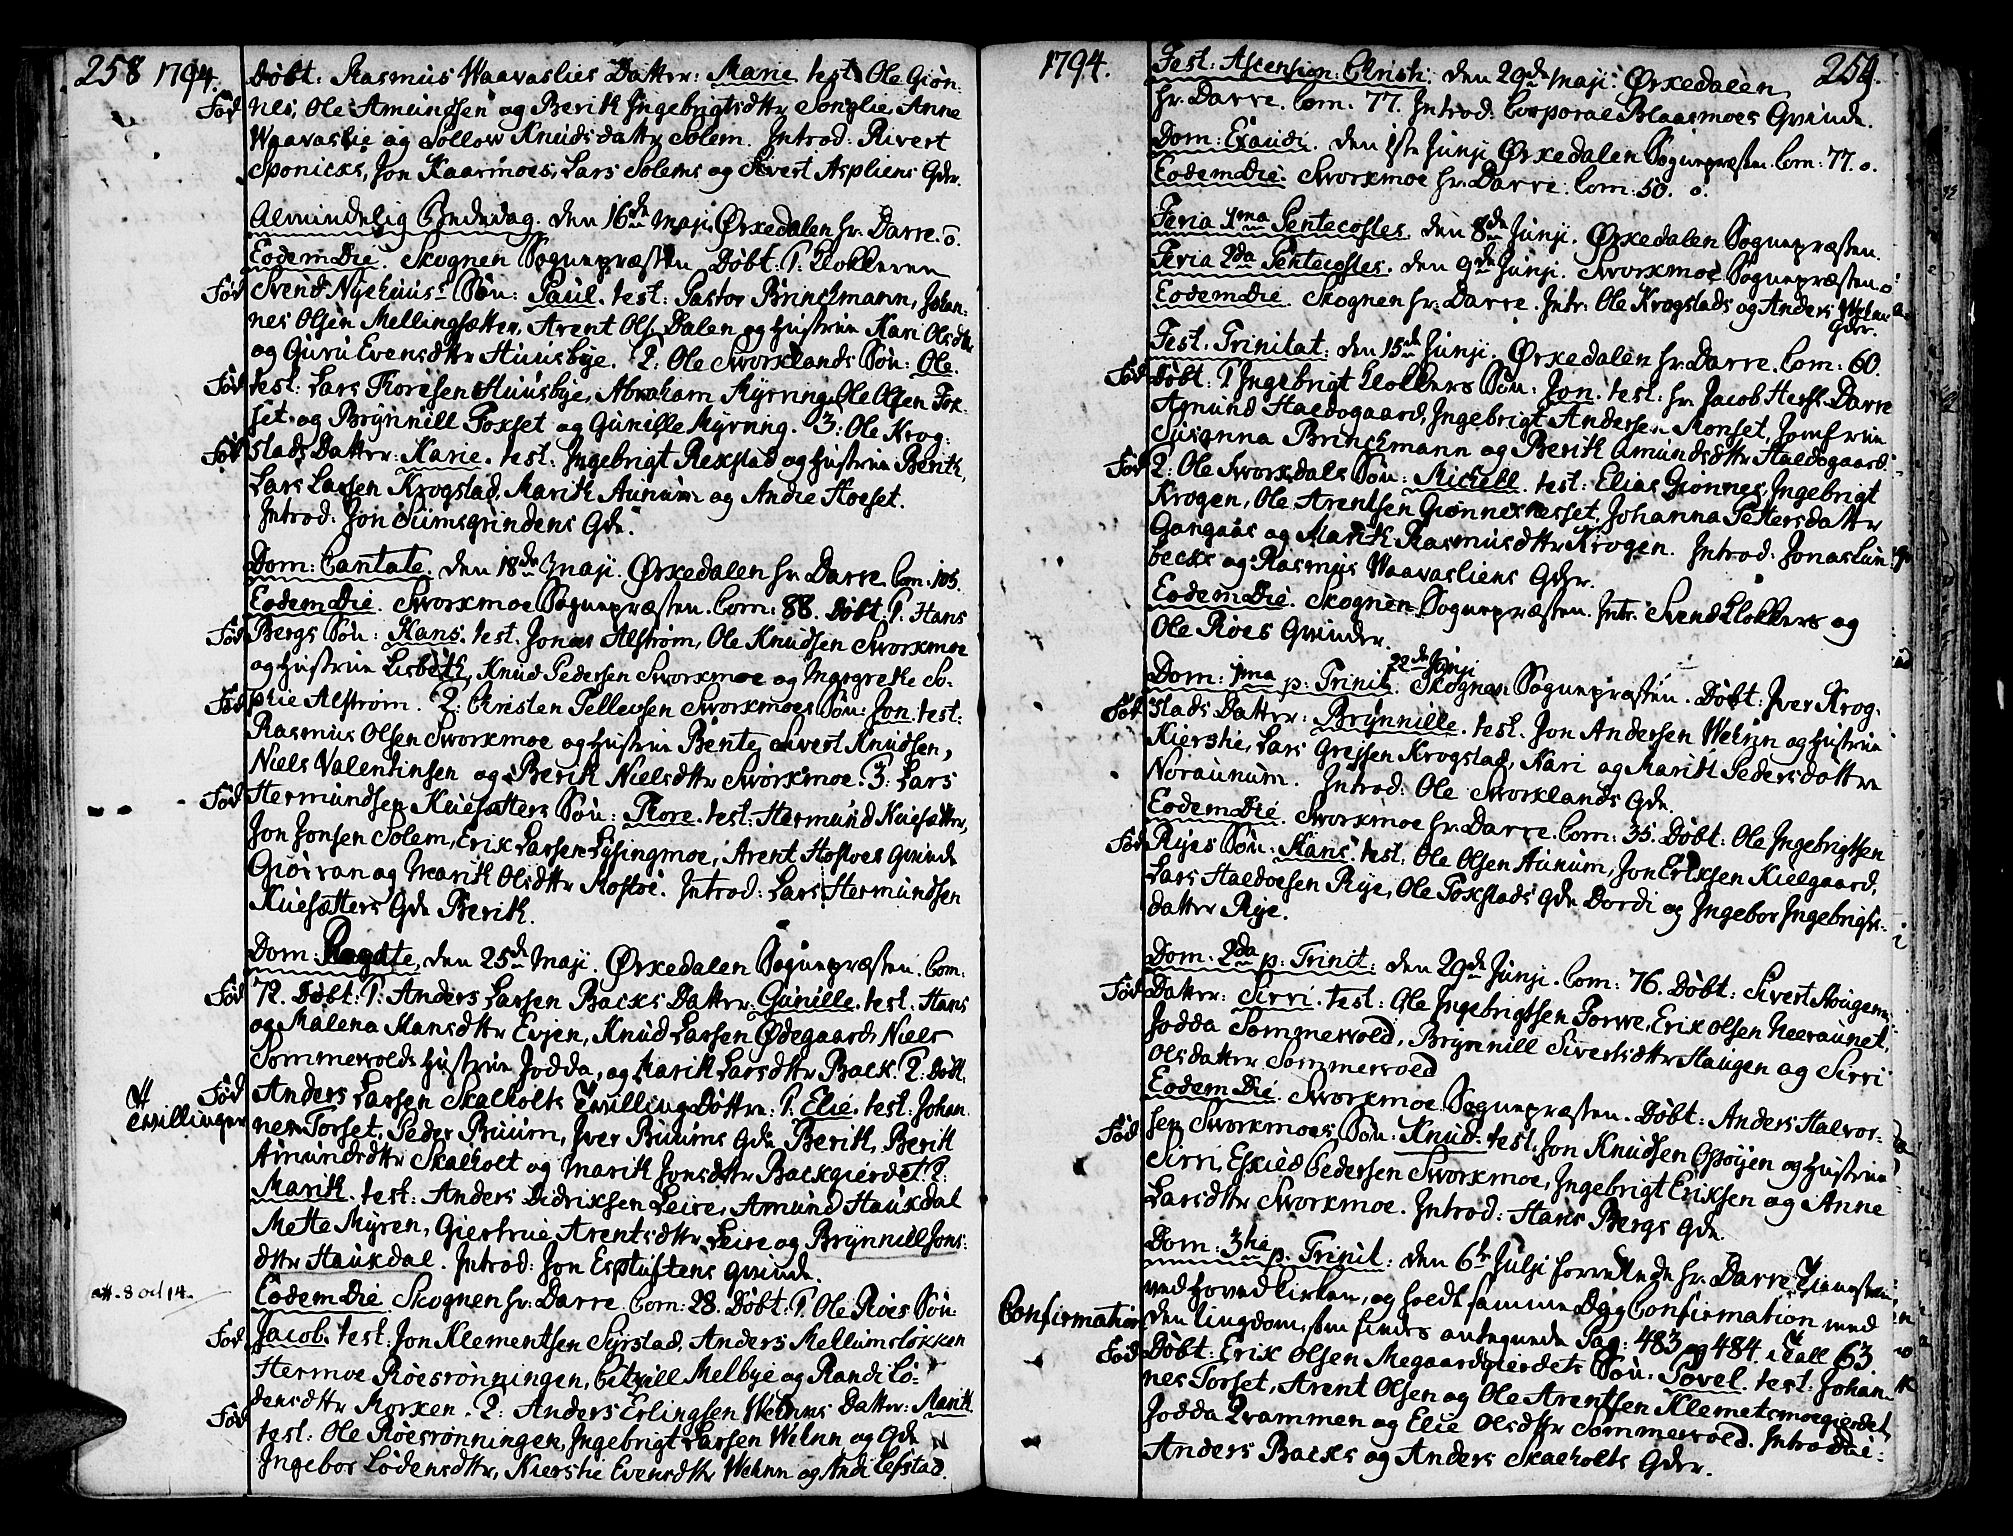 258 1794. Døbt: Rasmus Waavaslies Datter: Marie. test. Ole Giøn-
Fød nes, Ole Amundsen og Berith Ingebrigtsdttr Songlie, Anne
Waavaslie og Sollow Knudsdattr Solem. Introd: Sivert
Sponicks, Jon Kaarmoes, Lars Solems og Sivert Aspliens Qdr.
Almindelig Bededag. den 16de Maji. Ørkedalen hr. Darre. o.
Eodem Die. Skognen Sognepræsten. Døbt: 1. Klokkeren
Fød Svend Nyehuus's Søn: Paul. test: Pastor Brinchmann, Johan-
nes Olsen Mellingsætter, Arent Ols. Dalen og Hustrue Kari Olsdttr
og Guru Evensdttr Huusbye. 2: Ole Sworklands Søn: Ole.
Fød test: Lars Thoresen Huusbye, Abraham Myrning, Ole Olsen Fox-
set og Brynnill Foxset og Gunille Myrning. 3: Ole Krog-
Fød stads Datter: Karie. test: Ingebrigt Rexstad og Hustrue Berith,
Lars Larsen Krogstad, Marith Aunum og Andie Hoeset.
Introd: Jon Sumsgrindens Qde.
Dom: Cantate. den 18de Maji. Ørkedalen hr. Darre. Com: 105.
Eodem Die. Sworkmoe Sognepræsten. Com: 88. Døbt: 1. Hans
Fød Bergs Søn: Hans. test. Jonas Alstrøm, Ole Knudsen Sworkmoe
og Hustrue Lisbeth, Knud Pedersen Sworkmoe og Ingegrethe So-
Fød phie Alstrøm. 2: Christen Tellevsen Sworkmoes Søn: Jon. test:
Rasmus Olsen Sworkmoe og Hustrue Bente, Sivert Knudsen,
Niels Valentinsen og Berith Nielsdttr Sworkmoe. 3: Lars
Fød Hermundsen Kuesætters Søn: Thore. test: Hermund Kuesætter,
Jon Jonsen Solem, Erik Larsen Lysingmoe, Arent Hostoes Qvinde
Giørran og Marith Olsdttr Hostoe. Introd: Lars Hermundsen
Kuesætters Qde Berith.
Dom: Rogate. den 25de Maji. Ørkedalen Sognepræsten. Com:
Fød 72. Døbt: 1: Anders Larsen Backs Datter: Gunille. test: Hans
og Malena Hansdttr Evjen, Knud Larsen Ødegaard, Niels
Sommervolds Hustrue Jodda, og Marith Larsdttr Back. 2: Døbt.
Fød Anders Larsen Skalholts Tvilling Døttre: 1. Elie. test: Johan-
Tvillinger nes Torset, Peder Buum, Iver Buums Qde Berith, Berith
Amundsdttr Skalholt og Marith Jonsdttr Backgierdet. 2:
Marith. test: Anders Didriksen Leire, Amund Haukdal
Mette Myren, Giertrue Arentsdttr Leire og Brynnill Jons-
dttr Haukdal. Introd: Jon Esplustens Qvinde.
att. 8 oct 14. Eodem Die. Skognen hr. Darre. Com: 28. Døbt: 1. Ole Roes Søn:
Fød Jacob. test: Jon Klementsen Syrstad, Anders Mellumsløkken
Hermoe Roesrønningen, Citzill Melbye og Randi Lo-
densdttr Morken. 2: Anders Erlingsen Wehns Datter: Marith
Fød test: Ole Roesrønningen, Ingebrigt Larsen Wehn og Qde
Ingebor Lodensdttr, Kierstie Evensdttr Wehn og Andi Lefstad.
1794. Fest: Ascension: Christi: den 29de Maji: Ørkedalen 259.
hr. Darre. Com: 77. Introd: Corporal Blaasmoes Qvinde.
Dom: Exaudi. den 1ste Junji Ørkedalen Sognepræsten. Com: 77. o.
Eodem Die. Sworkmoe hr. Darre. Com: 50. o.
Feria 1ma Pentecostes. den 8de Junji. Ørkedalen Sognepræsten.
Feria 2da Pentecostes. den 9de Junji. Sworkmoe Sognepræsten. o
Eodem Die. Skognen hr. Darre. Intr: Ole Krogstads og Anders
Qdr.
Fest. Trinitat: den 15de Junji. Ørkedalen hr. Darre. Com: 60.
Fød Døbt: 1 Ingebrigt Klokkers Søn: Jon. test: hr. Jacob Hersl. Darre
Amund Haldogaard, Ingebrigt Andersen Monset, Jomfrue
Susanna Brinchmann og Berith Amundsdttr Haldogaard.
Fød 2: Ole Sworkdals Søn: Michell. test: Elias Gionnes, Ingebrigt
Krogen, Ole Arentsen Giønnesnesset, Johanna Pettersdatter
Gangaas og Marith Rasmusdttr Krogen. Introd: Jonas Lun-
becks og Rasmus Waavasliens Qder.
Eodem Die. Skognen Sognepræsten. Intr: Svend Klokkers og
Ole Roes Qvinder.
Dom: 1ma p: Trinit. 22de Junji Skognen Sognepræsten. Døbt: Iver Krog-
Fød stads Datter: Brynnille. test. Jon Andersen Wehn og Hustrue
Kierstie, Lars Greisen Krogstad, Kari og Marith Pedersdøttre
Noraunum. Introd: Ole Sworklands Qde.
Eodem Die. Sworkmoe hr. Darre. Com: 35. Døbt: Ole Ingebrigtsen
Fød Ryes Søn: Hans. test: Ole Olsen Aunum, Jon Eriksen Kielgaard,
Lars Haldoesen Rye, Ole Foxstads Qde Dordi og Ingebor Ingebrigts-
datter Rye.
Dom: 2da p: Trinit: den 29de Junji. Com: 76. Døbt: Sivert Hougens
Fød Datter: Sirri. test: Ole Ingebrigtsen Torwe, Erik Olsen Neeraunet,
Jodda Sommervold, Brynnill Sivertsdttr Haugen og Sirri
Olsdatter Sommervold
Eodem Die. Sworkmoe Sognepræsten. Døbt: Anders Halvor-
Fød sen Sworkmoes Søn: Knud. test. Jon Knudsen Osøyen og Hustrue
Sirri, Eskild Pedersen Sworkmoe, Ingebrigt Eriksen og Anne
Larsdttr Sworkmoe. Introd: Hans Bergs Qde.
Dom: 3tia p: Trinit: den 6te Julji forrettede hr. Darre Tienesten
ved Hovedkirken, og holdt samme Dag Confirmation med
Confirmation den Ungdom, som findes antegnede Pag: 483 og 484. Tall 63
Fød Døbt: Erik Olsen Megaardgierdets Søn: Povel. test: Johan-
nes Torset, Arent Olsen og Ole Arentsen Klemetsmoegierdet,
Jodda Drammen og Elie Olsdttr Sommervold. Introd:
Anders Backs og Anders Skalholts Qder.